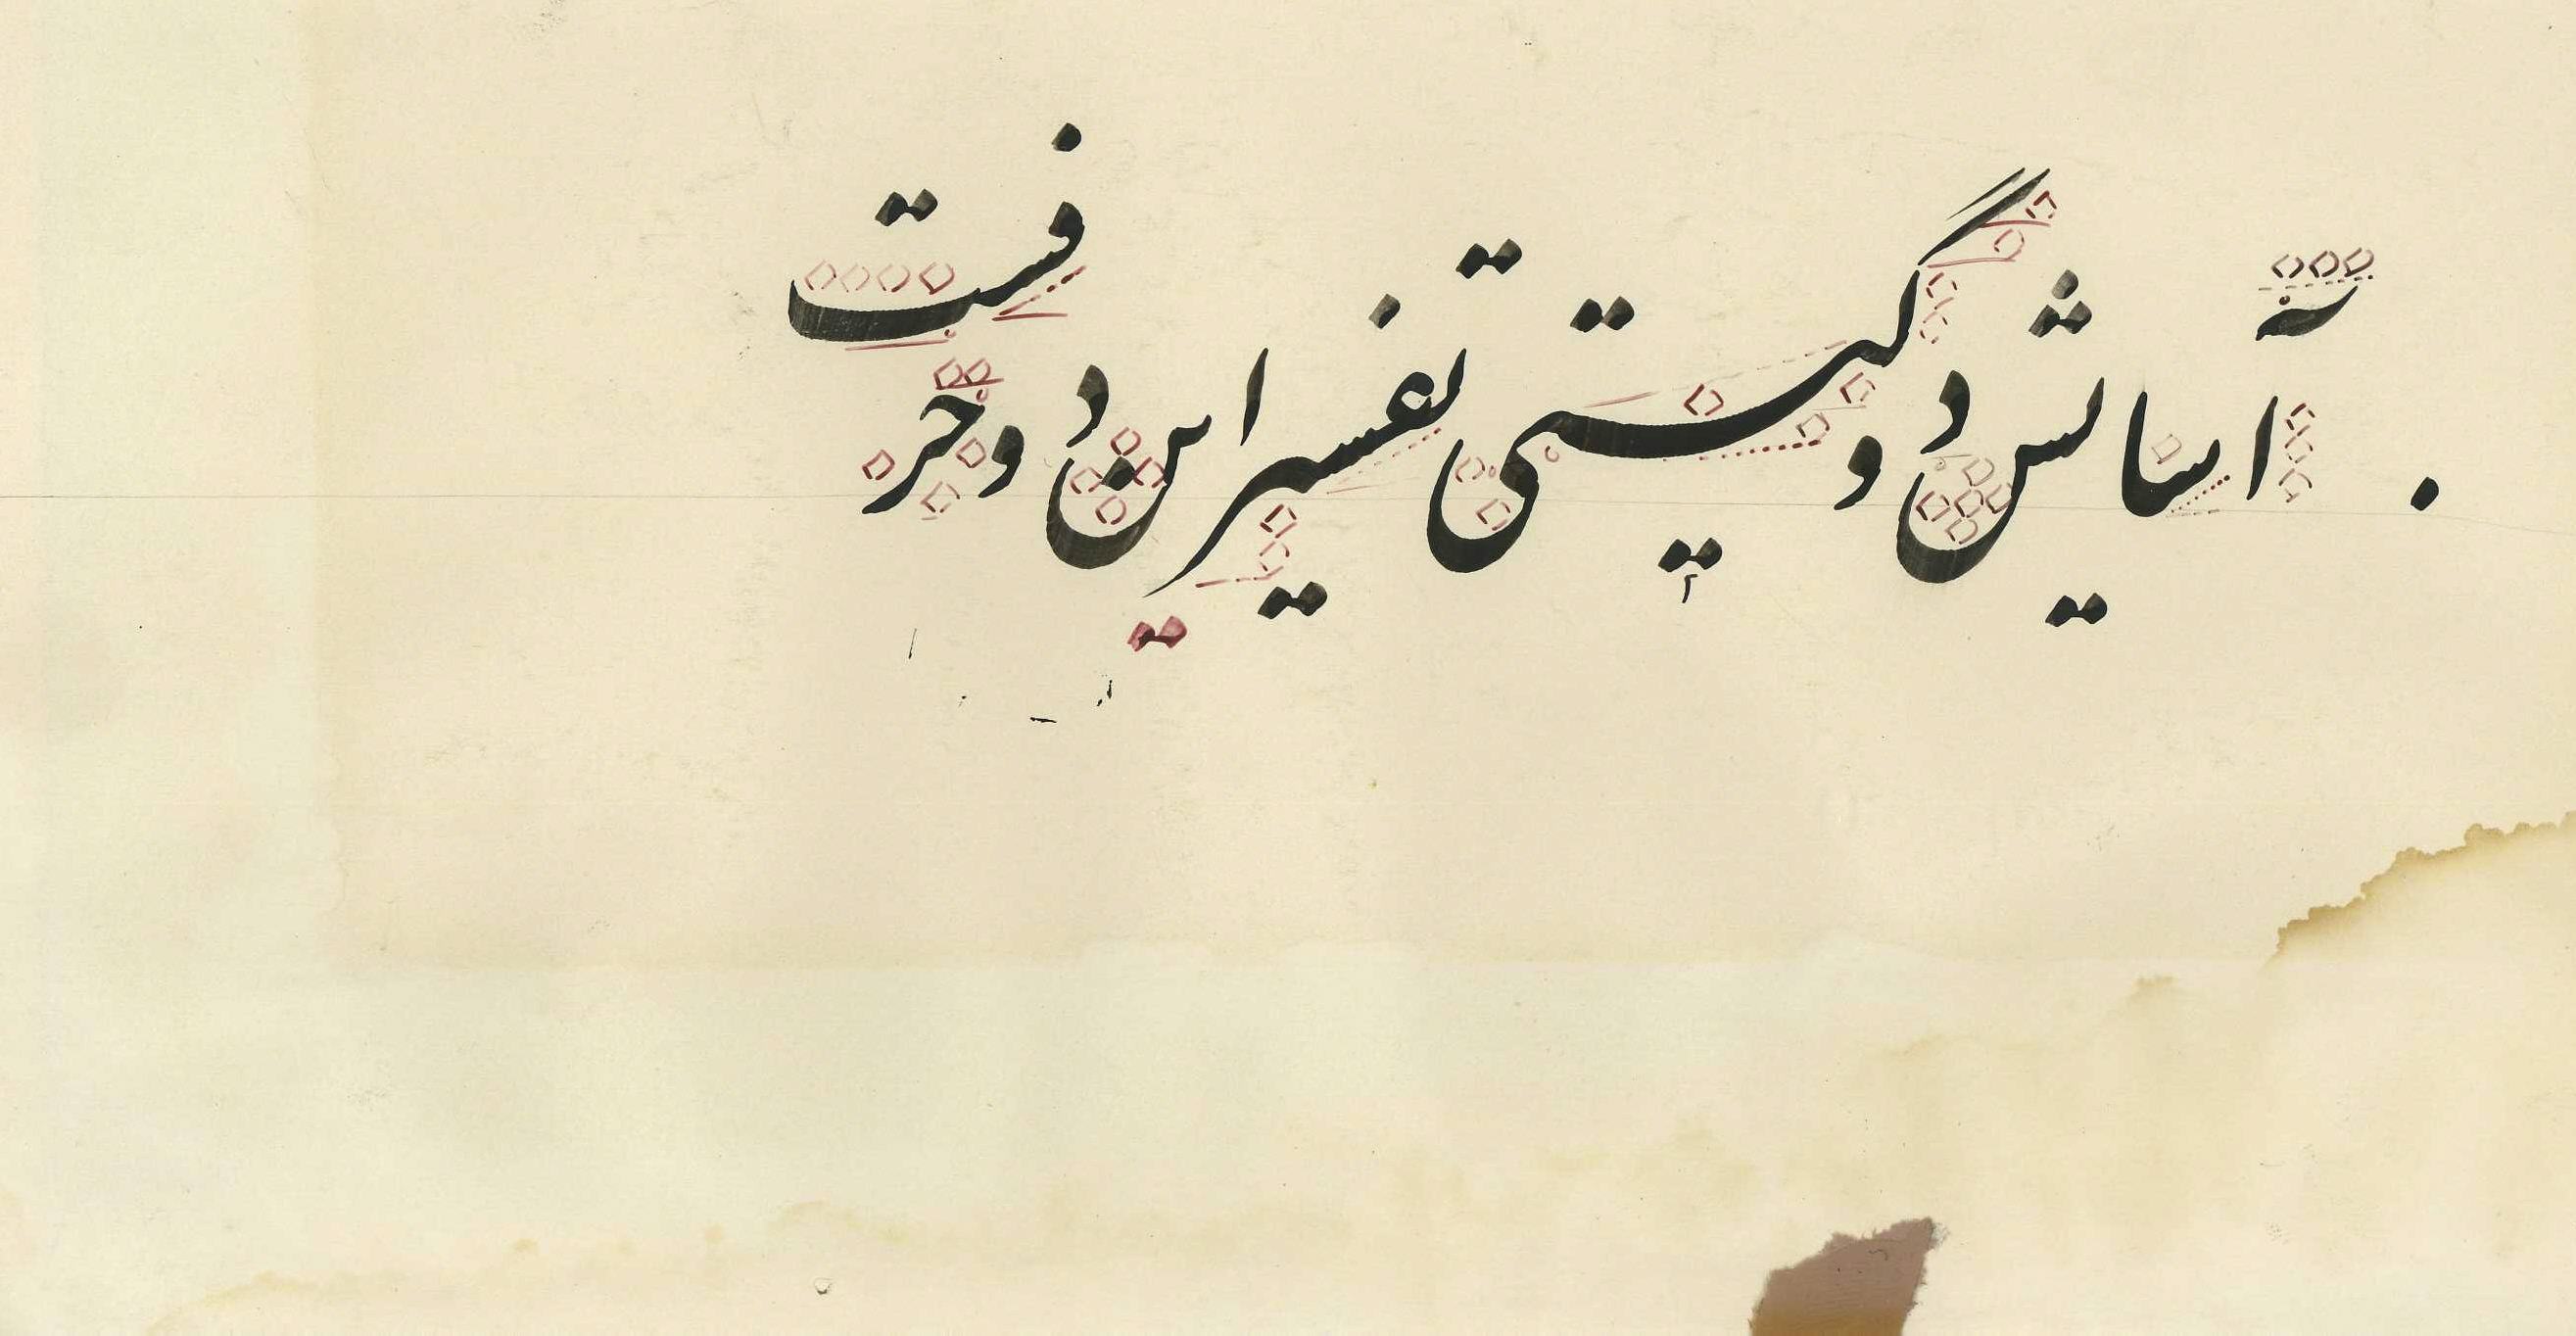 آسایش دو گیتی تفسیر این دو حرفست